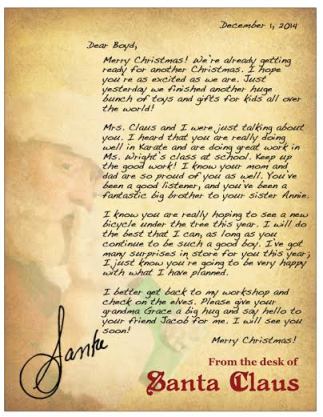 December 1, 2014
Dear Boyd,
Merry Christmas! We're already getting
ready for another Christmas. I hope
you're as excited as we are. Just
yesterday we finished another huge
bunch of toys and gifts for kids all over
the world!
Mrs. Claus and I were just talking about
you. I heard that you are really doing
well in Karate and are doing great work in
Ms. Wright's class at school. Keep up
the good work! I know your mom and
dad are so proud of you as well. You've
been a good listener, and you've been a
fantastic big brother to your sister Annie.
I know you are really hoping to see a new
bicycle under the tree this year. I will do
the best that I can, as long as you
continue to be such a good boy. I've got
many surprises in store for you this year;
I just know you're going to be very happy
with what I have planned.
I better get back to my workshop and
check on the elves. Please give your
grandma Grace a big hug and say hello to
your friend Jacob for me. I will see you
soon!
Merry Christmas!
Santa
From the desk of
Santa Claus